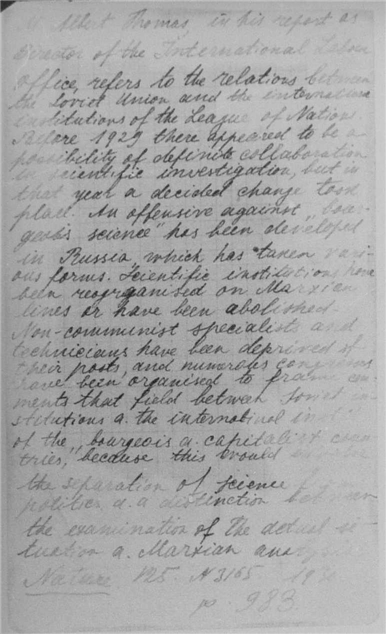 M Albert Thomas, in his report as
Director of the International Labour
Office, refers to the relations between
the Soviet Union and the international
institutions of the League of Nations.
Before 1929 there appeared to be a
possibility of definite collaboration
in scientific investigation, but in
that year a decided change took
place. An offensive against „bour-
geois science" has been developed
in Russia, which has taken vari-
ous forms. Scientific institutions have
been reorganised on Marxian
lines or have been abolished.
Non-communist specialists and
technicians have been deprived of
their posts, and numerous
have been organised to
ments that field between Soviet in-
stitutions a. the
of the „bourgeois a. capitalist coun-
tries," because this would
the separation of science
politics a. a distinction between
the examination of the actual si-
tuation a. Marxian
Nature 125. N 3165 1930
p. 983.